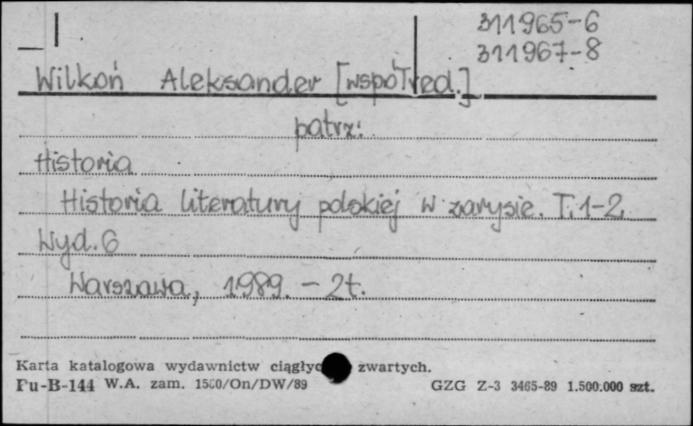 311965-6
311967-8
Wilkoń Aleksander [współred.]
patrz:
Historia
Historia literatury polskiej w zarysie. T. 1-2
Wyd. 6
Warszawa, 1989. - 2t.
Karta katalogowa wydawnictw ciągłyc zwartych.
Pu-B-144 W.A. zam. 1500/On/DW/89 GZG Z-3 3465-89 1.500.000 szt.